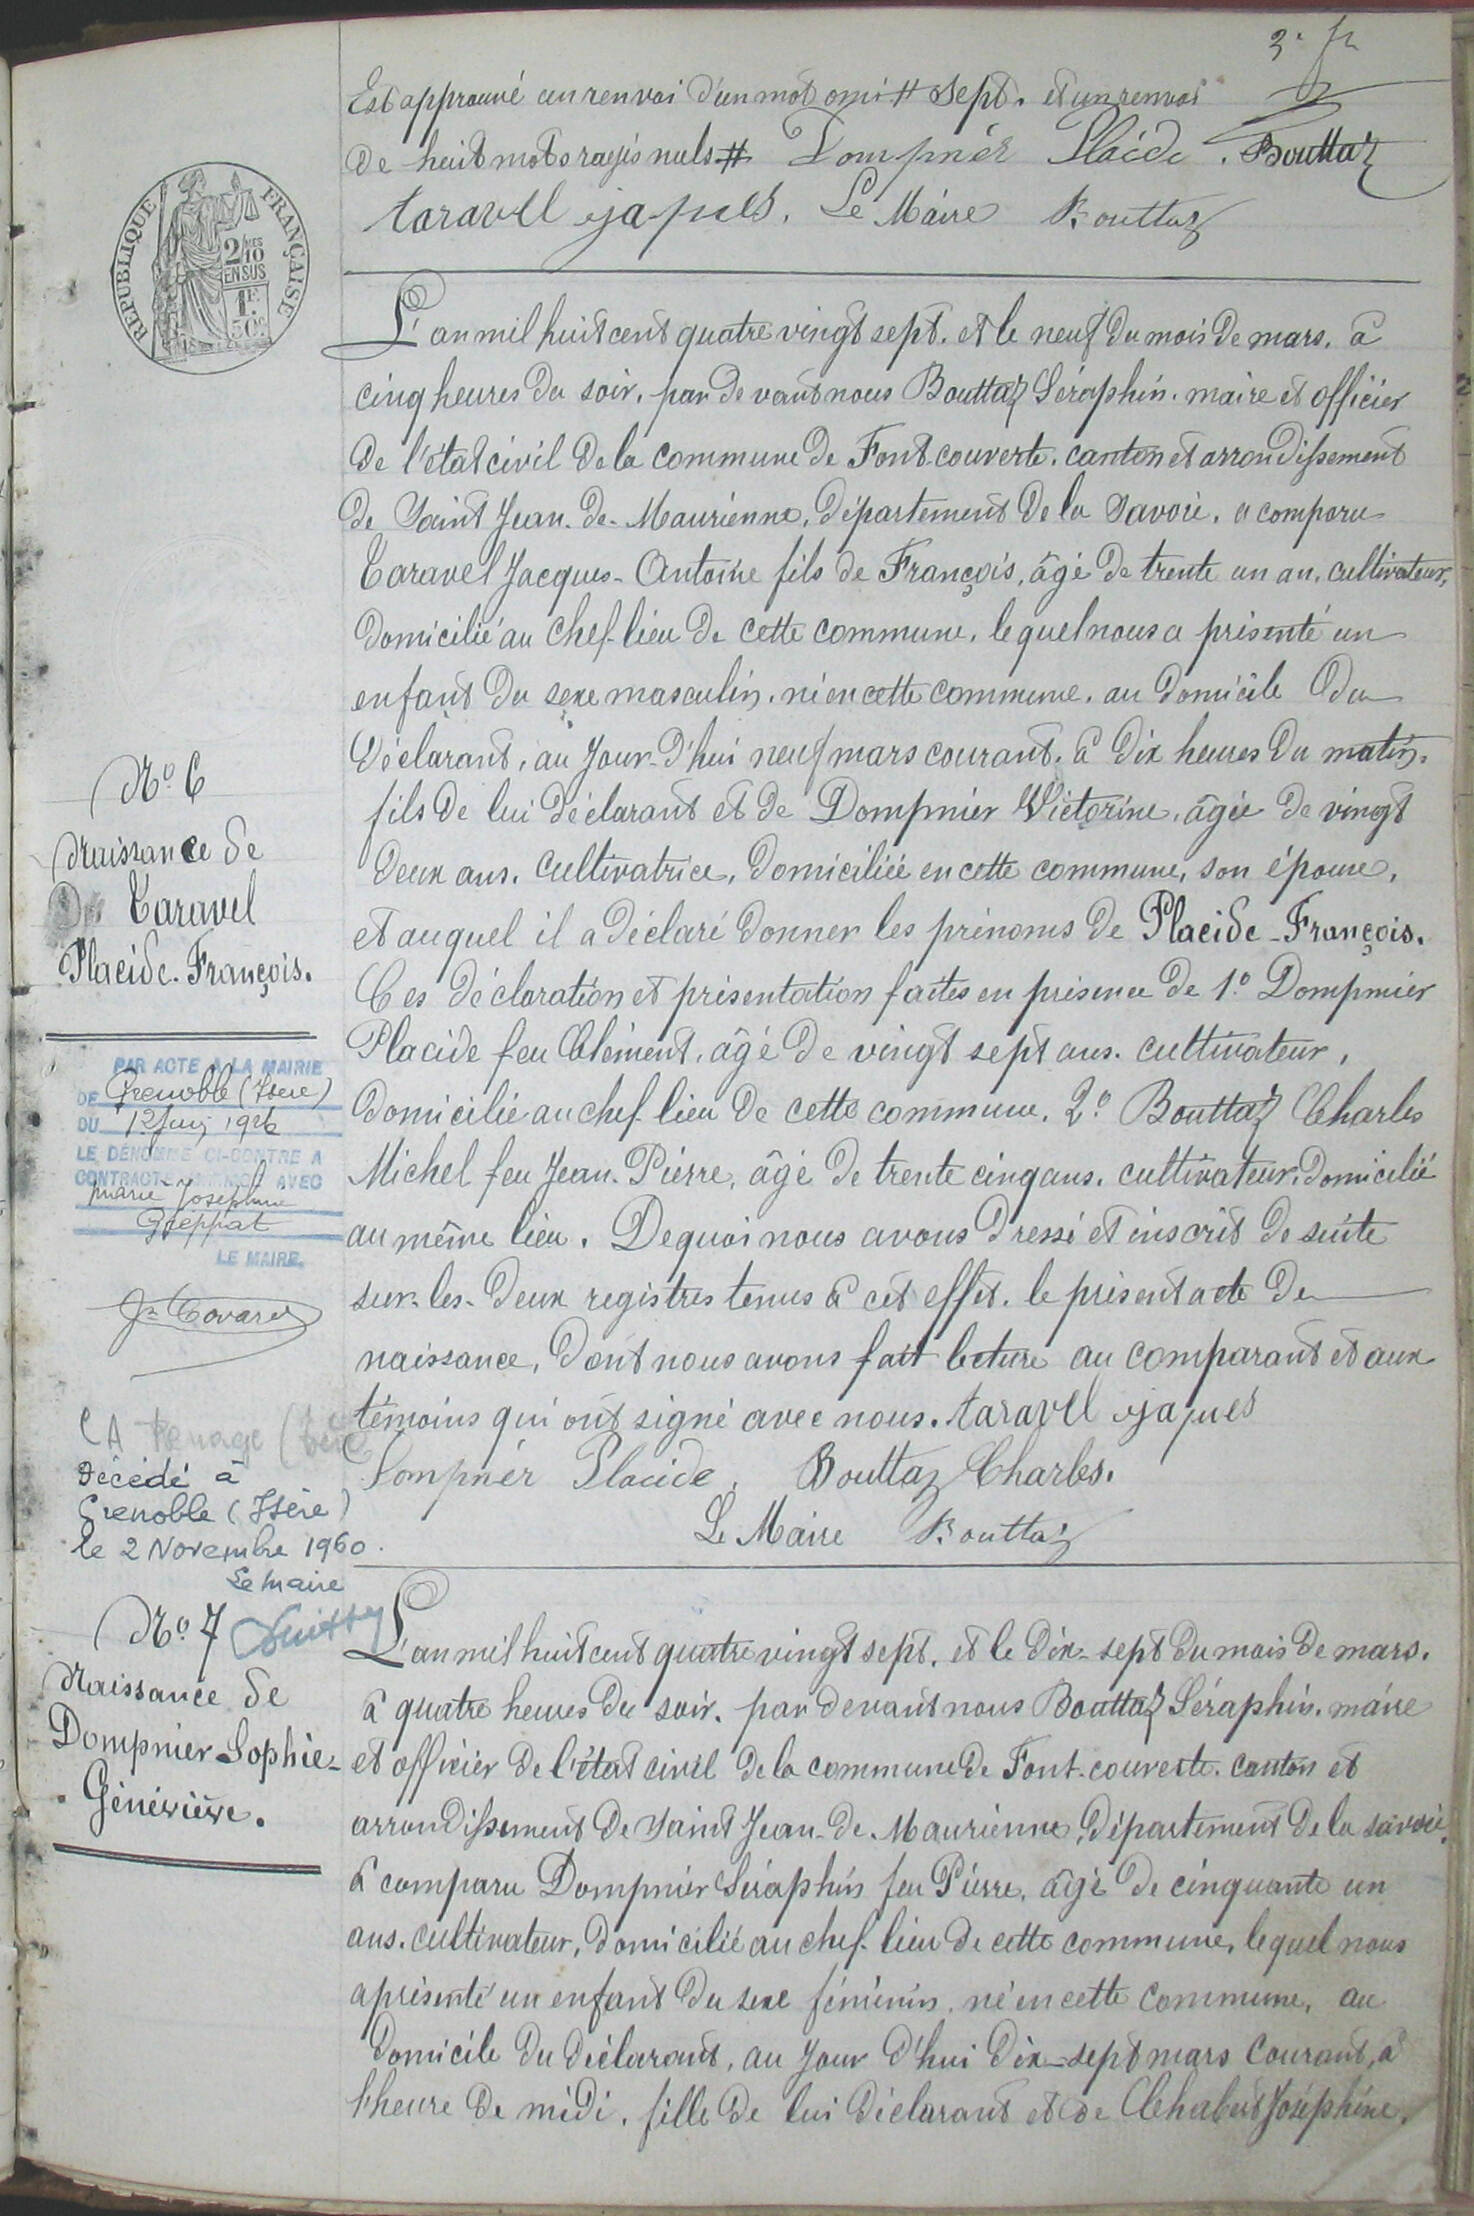 3e
Est approuvé un renvoi d'un mot omis # sept. et un renvoi
de huit mots rayés nuls # Dompnier Placide. Bouttaz
taravel jaques. Le Maire Bouttaz
REPUBLIQUE FRANÇAISE
2/10 EN SUS
1F. 50c
L'an mil huit cent quatre vingt sept. et le neuf du mois de mars, à
cinq heures du soir, par devant nous Bouttaz Séraphin, maire et officier
de l'état civil de la commune de Fontcouverte, canton et arrondissement
de Saint Jean-de-Maurienne, département de la Savoie, a comparu
Taravel Jacques-Antoine fils de François, âgé de trente un an, cultivateur,
domicilié au chef-lieu de cette commune, lequel nous a présenté un
enfant du sexe masculin, né en cette commune, au domicile du
déclarant, au jour-d'hui neuf mars courant, à dix heures du matin,
fils de lui déclarant et de Dompnier Victorine, âgée de vingt
deux ans, cultivatrice, domiciliée en cette commune, son épouse,
et auquel il a déclaré donner les prénoms de Placide-François.
Ces déclaration et présentation faites en présence de 1° Dompnier
Placide feu Clément, âgé de vingt sept ans, cultivateur,
domicilié au chef lieu de cette commune, 2° Bouttaz Charles
Michel feu Jean-Pierre, âgé de trente cinq ans, cultivateur, domicilié
au même lieu. De quoi nous avons dressé et inscrit de suite
sur-les-deux registres tenus à cet effet, le présent acte de
naissance, dont nous avons fait lecture au comparant et aux
témoins qui ont signé avec nous. taravel jaques
Dompnier Placide, Bouttaz Charles.
Le Maire Bouttaz
N° 6
Naissance de
Taravel
Placide-François.
PAR ACTE A LA MAIRIE
DE Grenoble (Isère)
DU 12 Juin 1926
LE DÉNOMMÉ CI-CONTRE A
CONTRACTÉ AVEC
Marie Josephine
LE MAIRE.
Décédé à
Grenoble (Isère)
le 2 Novembre 1960.
Le Maire
N° 7
Naissance de
Dompnier Sophie-
Généviève.
L'an mil huit cent quatre vingt sept, et le dix-sept du mois de mars,
à quatre heures du soir, par devant nous Bouttaz Séraphin, maire
et officier de l'état civil de la commune de Font-couverte, canton et
arrondissement de Saint Jean-de-Maurienne, département de la savoie,
à comparu Dompnier Séraphin feu Pierre, âgé de cinquante un
ans, cultivateur, domicilié au chef-lieu de cette commune, lequel nous
a présenté un enfant du sexe féminin, né en cette commune, au
domicile du déclarant, au jour d'hui dix-sept mars courant, à
l'heure de midi, fille de lui déclarant et de Chabert Joséphine,